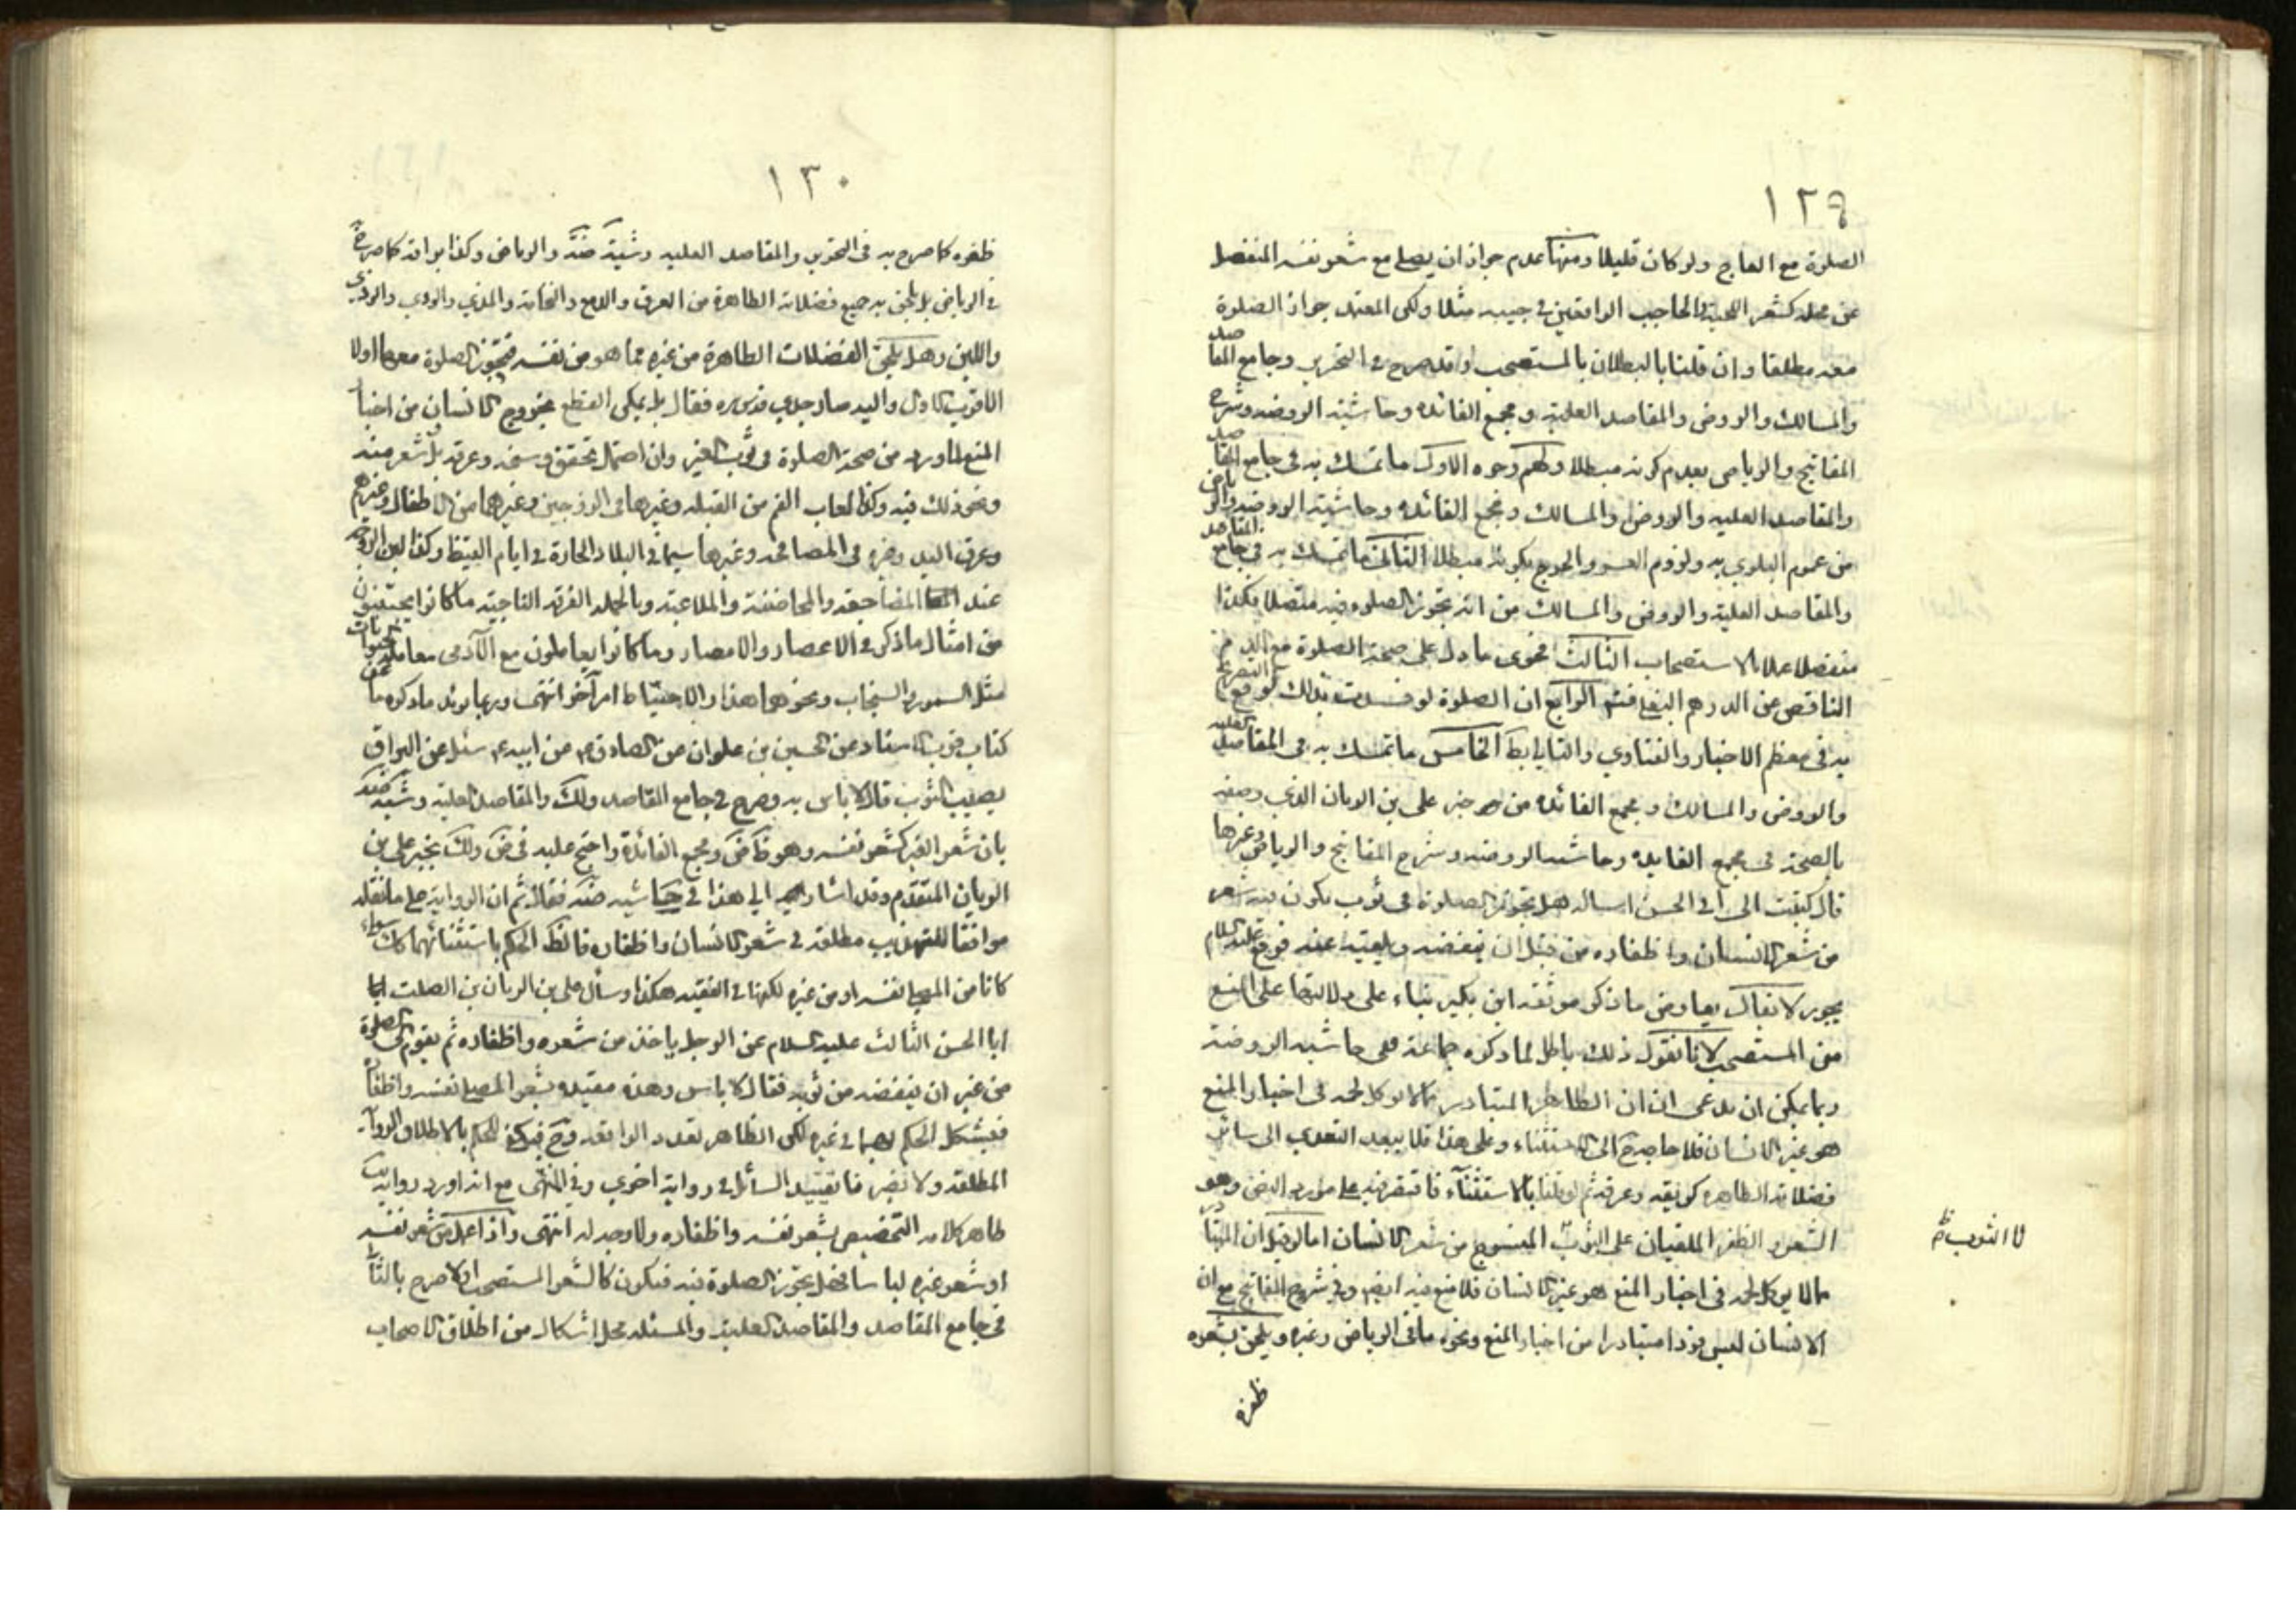 ١٢٩
الصلوة مع العاج ولو كان قليلا ومنها عدم جواز ان يصلي مع شعر نفسه المنفصل
عن محله كشعر اللحية والحاجب الواقعين في جيبه مثلا ولكن المعتمد جواز الصلوة
معه مطلقا وان قلنا بالبطلان بالمستصحب وقد صرح في التحرير وجامع المقاصد
والمسالك والروض والمقاصد العلية ومجمع الفائدة وحاشية الروضة وشرح
المفاتيح والرياض بعدم كونه مبطلا ولهم وجوه الاول ما تمسك به في جامع المقاصد
والمقاصد العلية والروض والمسالك ومجمع الفائدة وحاشية الروضة والرياض
من عموم البلوي به ولزوم العسر والحرج بكونه مبطلا الثاني ما تمسك به في جامع المقاصد
والمقاصد العلية والروض والمسالك من انه تجوز الصلوه فيه متصلا فكذا
منفصلا عملا بالاستصحاب الثالث فحوى ما دل على صحة الصلوة مع الدم
الناقص عن الدرهم البغلي الرابع ان الصلوة لو فسدت بذلك لوقع التصريح
به في معظم الاخبار والفتاوي والتالي بط الخامس ما تمسك به في المقاصد العلية
والروض والمسالك ومجمع الفائدة من خبر علي بن الريان الذي وصفه
بالصحة في مجمع الفايدة وحاشية الروضه وشرح المفاتيح والرياض وغيرها
قال كتبت الى ابي الحسن اساله هل تجوز الصلوة في ثوب يكون فيه شعر
من شعر الانسان واظفاره من قبل ان ينفضه ويلقيه عنه فوقع عليه السلام
يجوز لا يقال يعارض ما ذكر موثقة ابن بكير بناء على دلالتها على المنع
من المستصحب لانا نقول ذلك باطل لما ذكره جماعة ففي حاشية الروضة
ربما يمكن ان يدعى ان الظاهر المتبادر مما لا يوكل لحمه في اخبار المنع
هو غير الانسان فلا حاجة ح الى الاستثناء وعلى هذا فلا يبعد التعدي الى سائر
فضلاته الطاهرة كريقه وعرقه ثم لو قلنا بالاستثناء فاقتصر فيه على مورد النص وهو
الشعر والظفر الملقيان على الثوب المنسوج من شعر الانسان اما لو قيل ان المتبادر
لا الثوب ظ
مما لا يوكل لحمه في اخبار المنع هو غير الانسان فلا منع فيه ايضم وفي شرح المفاتيح مع ان
الانسان ليس فردا متبادرا من اخبار المنع ونحوه ما في الرياض وغيره ويلحق بشعره
ظفره
١٣٠
ظفره كما صرح به في التحرير والمقاصد العلية وشية ضة والرياض وكذا بزاقه كما صرح
في الرياض بل يلحق به جميع فضلاته الطاهرة من العرق والدمع والنخامة والمذي والودي والوذي
واللبن وهل يلحق الفضلات الطاهرة من غيره مما هو من نفسه فتجوز الصلوة معها اولا
الاقرب الاول واليه صار جدي قدس سره فقال بل يمكن القطع بخروج الانسان من اخبار
المنع لما ورد من صحة الصلوة في ثوب الغير وان احتمل تحقق وسخه وعرقه بل شعر منه
ونحو ذلك فيه وكذا لعاب الفم من القبلة وغيرها في الزوجين وغيرهما من الاطفال وغيرهم
وعرق اليد وغيره في المصافحه وغيرها سيما في البلاد الحارة في ايام القيظ وكذا لبن الزوجة
عند المضاجعة والمحاضنة والملاعبة وبالجملة الفرقة الناجية ما كانوا يجتنبون
من امثال ما ذكر في الاعصار والامصار وما كانوا يعاملون مع الآدمي معاملة حيوانات
مثل السمور والسنجاب ونحوهما هذا والاحتياط امر آخر انتهى وربما يوئد ما ذكره ما عن
كتاب قرب الاسناد عن الحسين بن علوان عن الصادق عن ابيه سئل عن البزاق
يصيب الثوب قال لا باس به وصرح في جامع المقاصد ولك والمقاصد العلية وشية ضة
بان شعر الغير كشعر نفسه وهو ظ ض ومجمع الفائدة واحتج عليه في ض ولك بخبر علي بن
الريان المتقدم وقد اشار الي هذا في حاشية ضة فقال ثم ان الرواية على ما نقله
موافقا للتهذيب مطلقة في شعر الانسان واظفاره فالظ الحكم باستثنائهما سواء
كانا من المصلي نفسه او من غيره لكنها في الفقيه هكذا وسأل علي بن الريان بن الصلت
ابا الحسن الثالث عليه السلام عن الرجل ياخذ من شعره واظفاره ثم يقوم الى الصلوة
من غير ان ينفضه من ثوبه فقال لا باس وهذه مقيدة بشعر المصلي نفسه واظفاره
فيشكل الحكم بهما في غيره لكن الظاهر تعدد الواقعه وح فيمكن الحكم بالاطلاق للرواية
المطلقة ولا يضر فا تقييد السائل في رواية اخرى وفي المنتهى مع انه اورد رواية
ظاهر كلامه التخصيص بشعر نفسه واظفاره ولا وجه له انتهى واذا عمل من شعر نفسه
او شعر غيره لباسا فهل تجوز الصلوة فيه فيكون كالشعر المستصحب اولا صرح بالثاني
في جامع المقاصد والمقاصد العلية والمسئلة محل اشكال من اطلاق الاصحاب